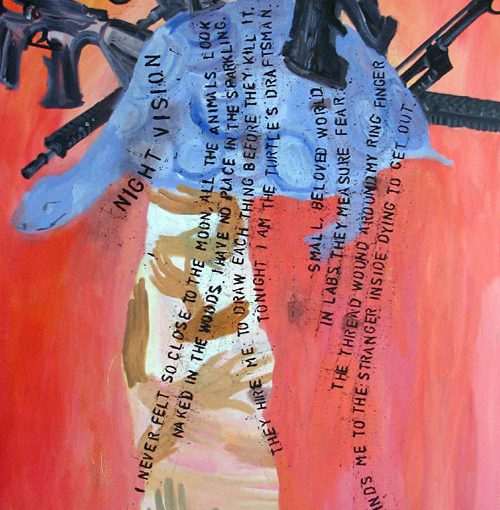 NIGHT VISION
I NEVER FELT SO CLOSE TO THE MOON. ALL THE ANIMALS LOOK
NAKED IN THE WOODS. I HAVE NO PLACE IN THE SPARKLING.
THEY HIRE ME TO DRAW EACH THING BEFORE THEY KILL IT.
TONIGHT I AM THE TURTLE'S DRAFTSMAN.
SMALL, BELOVED WORLD.
IN LABS THEY MEASURE FEAR.
THE THREAD WOUND AROUND MY RING FINGER
INDS ME TO THE STRANGER INSIDE DYING TO GET OUT.